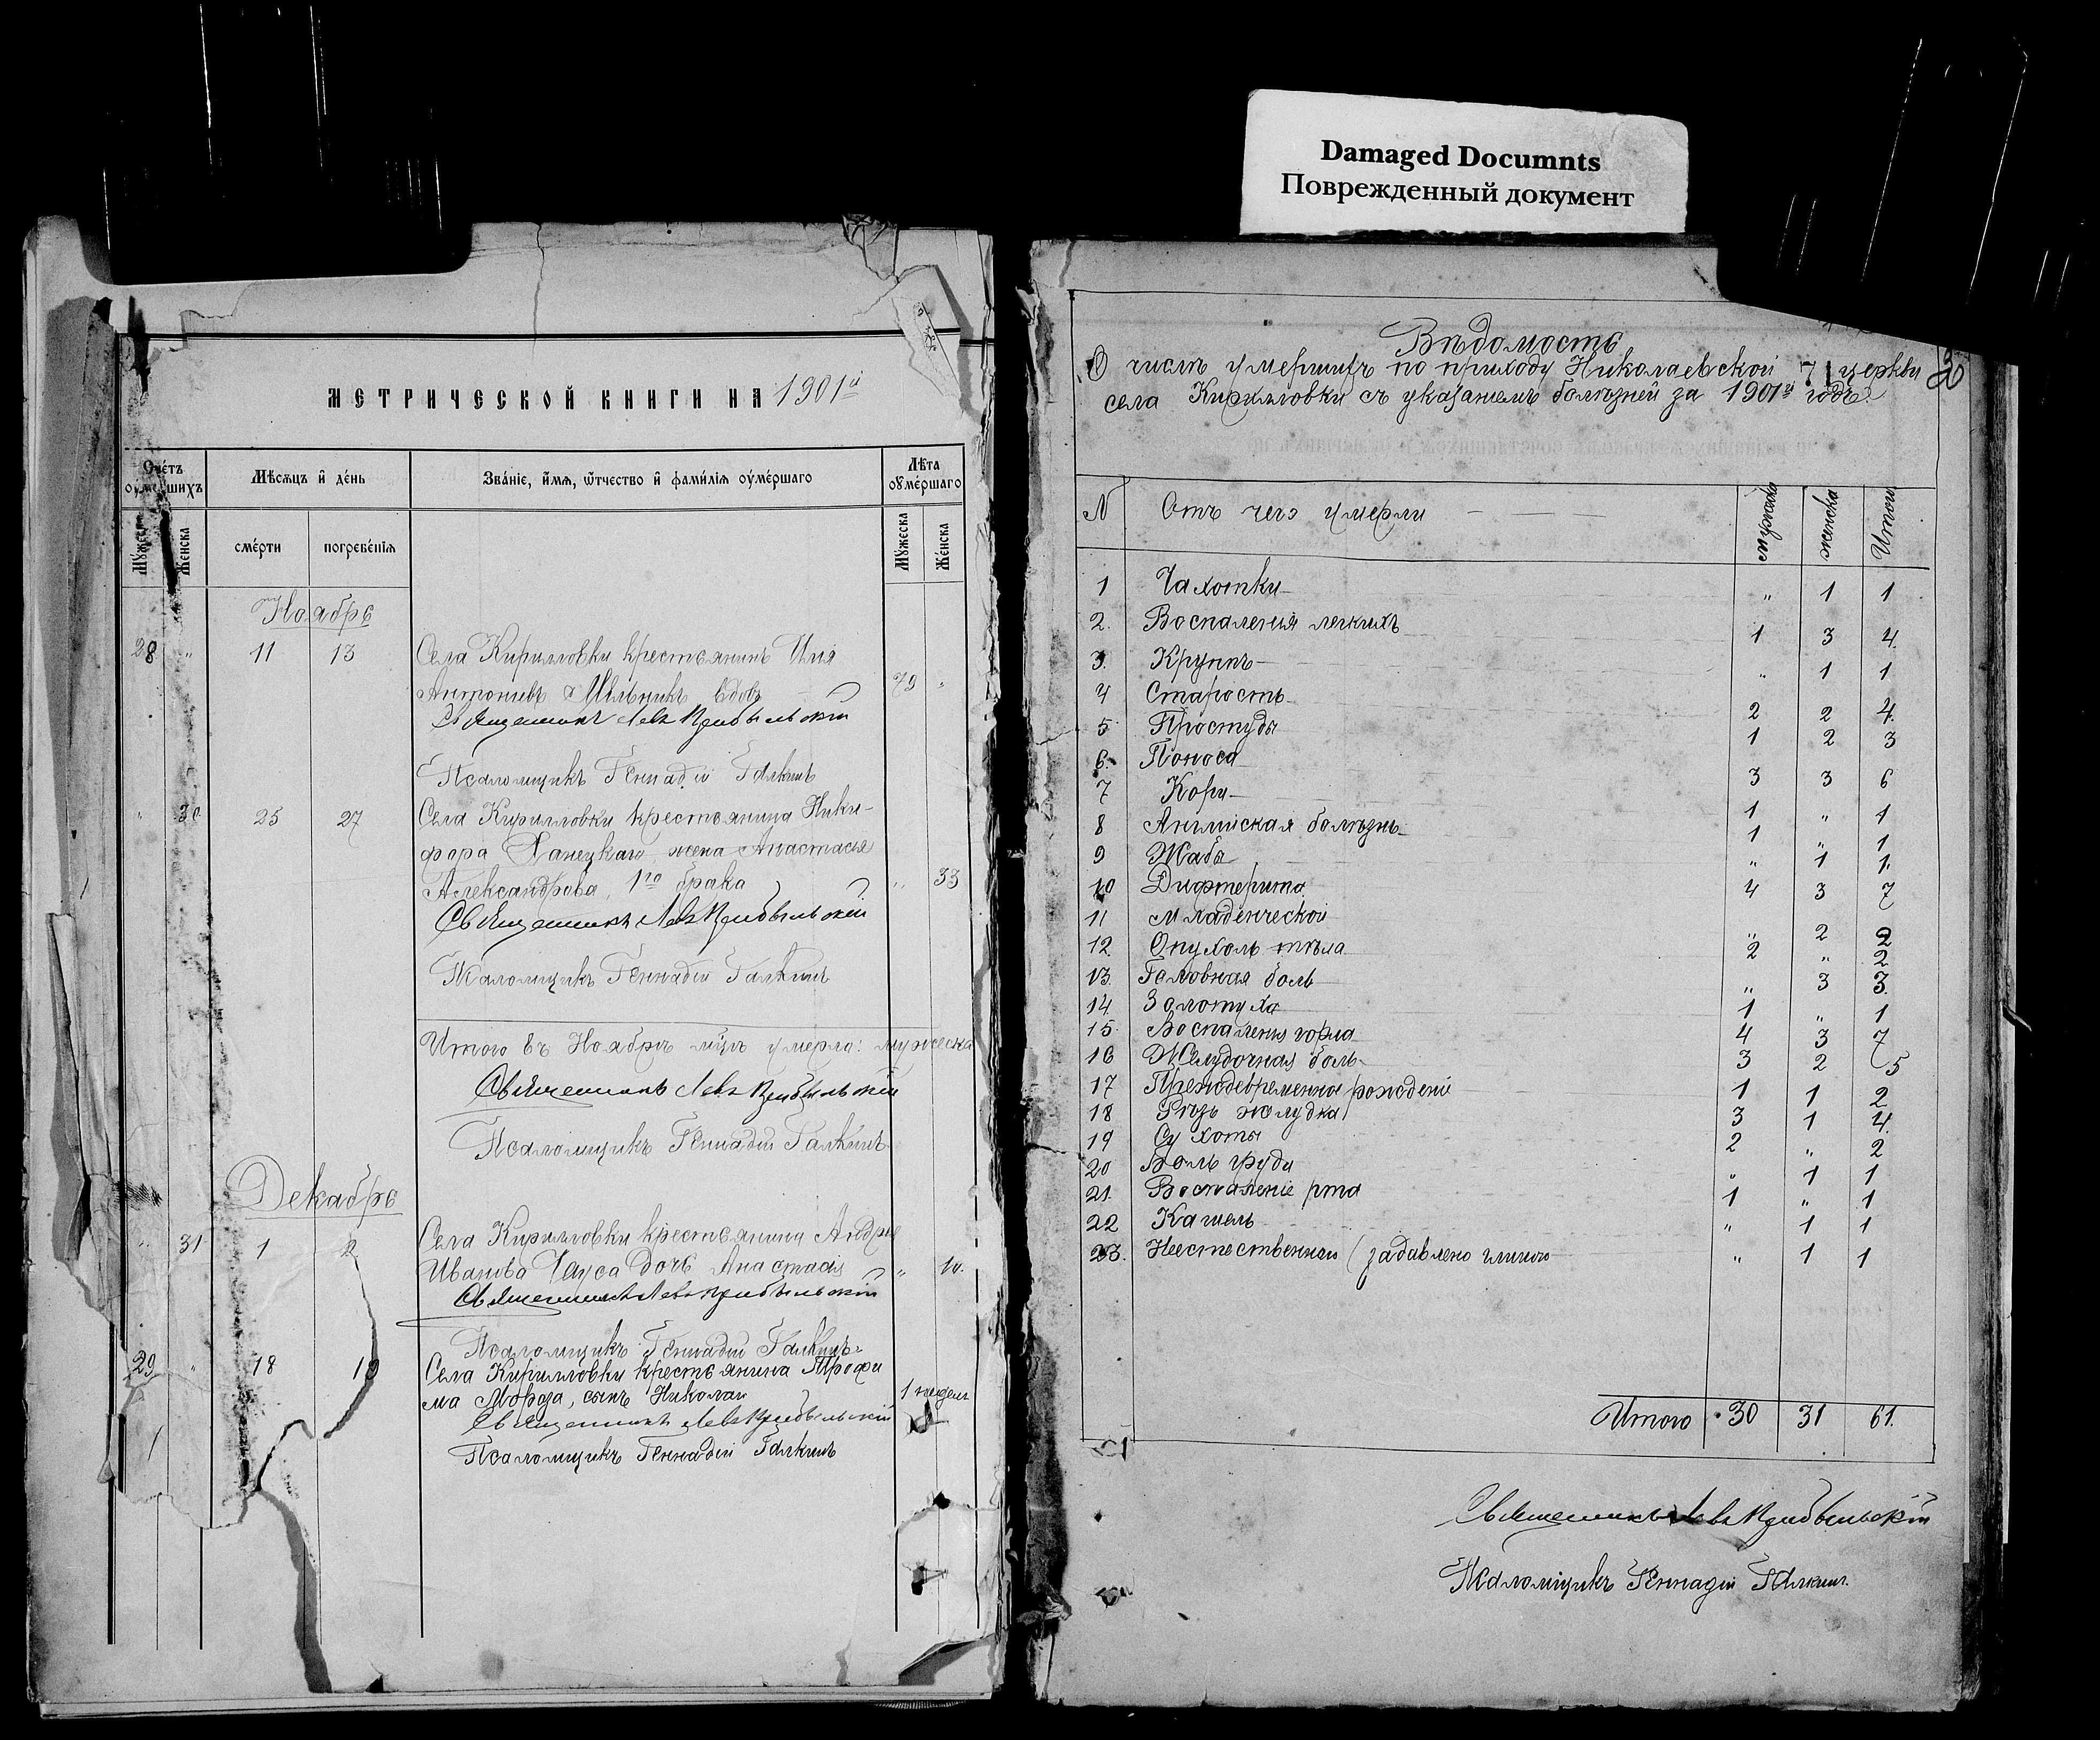 Damaged Documnts
Поврежденный документ
МЕТРИЧЕСКОЙ КНИГИ НА 1901й
Сче́тъ оумершихъ
Мѣсяцъ и҆ де́нь
Зва́нїе, и҆́мѧ, ѿтчество и҆ фамилїѧ оуме́ршаго
Лѣта оуме́ршаго
Мужеска
Женска
сме́рти
погребе́нїѧ
Мужеска
Женска
Ноябрь
28 " 11 13 Села Кирилловки крестьянинъ Илія
Антоніевъ Мѣльникъ вдовъ 79 "
Священникъ Левъ
Псаломщикъ Геннадій Галкинъ
" 30 25 27 Села Кирилловки крестьянина Ники-
фора Ханецкаго жена Анастасія
Александрова, 1го брака " 33
Священникъ Левъ
Псаломщикъ Геннадій Галкинъ
Итого въ Ноябрѣ мцѣ умерло: мужеска
Священникъ Левъ
Псаломщикъ Геннадій Галкинъ
Декабрь
" 31 1 2 Села Кирилловки крестьянина Андрея
Иванова дочь Анастасія " 10.
Священникъ Левъ
Псаломщикъ Геннадій Галкинъ
29 " 18 19 Села Кирилловки крестьянина Трофи
ма Мороза, сынъ Николай 1 недѣл.
Священникъ Левъ
Псаломщикъ Геннадій Галкинъ
Вѣдомость
О числѣ умершихъ по приходу Николаевской церкви
села Кирилловки съ указаніемъ болѣзней за 1901й годъ.
71
N Отъ чего умерли мужска женска Итого
1 Чахотки " 1 1
2. Воспаленія легкихъ 1 3 4.
3. Крупъ " 1 1
4 Старость 2 2 4.
5 Простуды 1 2 3
6. Поноса 3 3 6
7 Кори 1 " 1
8 Англійская болѣзнь 1 " 1
9 Жабы " 1 1.
10 Дифтерита 4 3 7
11 Младенческой " 2 2
12. Опухоль тѣла 2 " 2
13. Головная боль " 3 3.
14. Золотуха 1 " 1
15. Воспаленія горла 4 3 7
16 Желудочная боль 3 2 5
17 Преждевременное рожденіе 1 1 2
18 Рѣзь желудка 3 1 4.
19 Сухоты 2 " 2
20 Боль груди " 1 1
21. Воспаленіе рта 1 " 1
22 Кашель " 1 1
23. Неестественной (задавлено глиною " 1 1
Итого 30 31 61.
Священникъ Левъ
Псаломщикъ Геннадій Галкинъ.